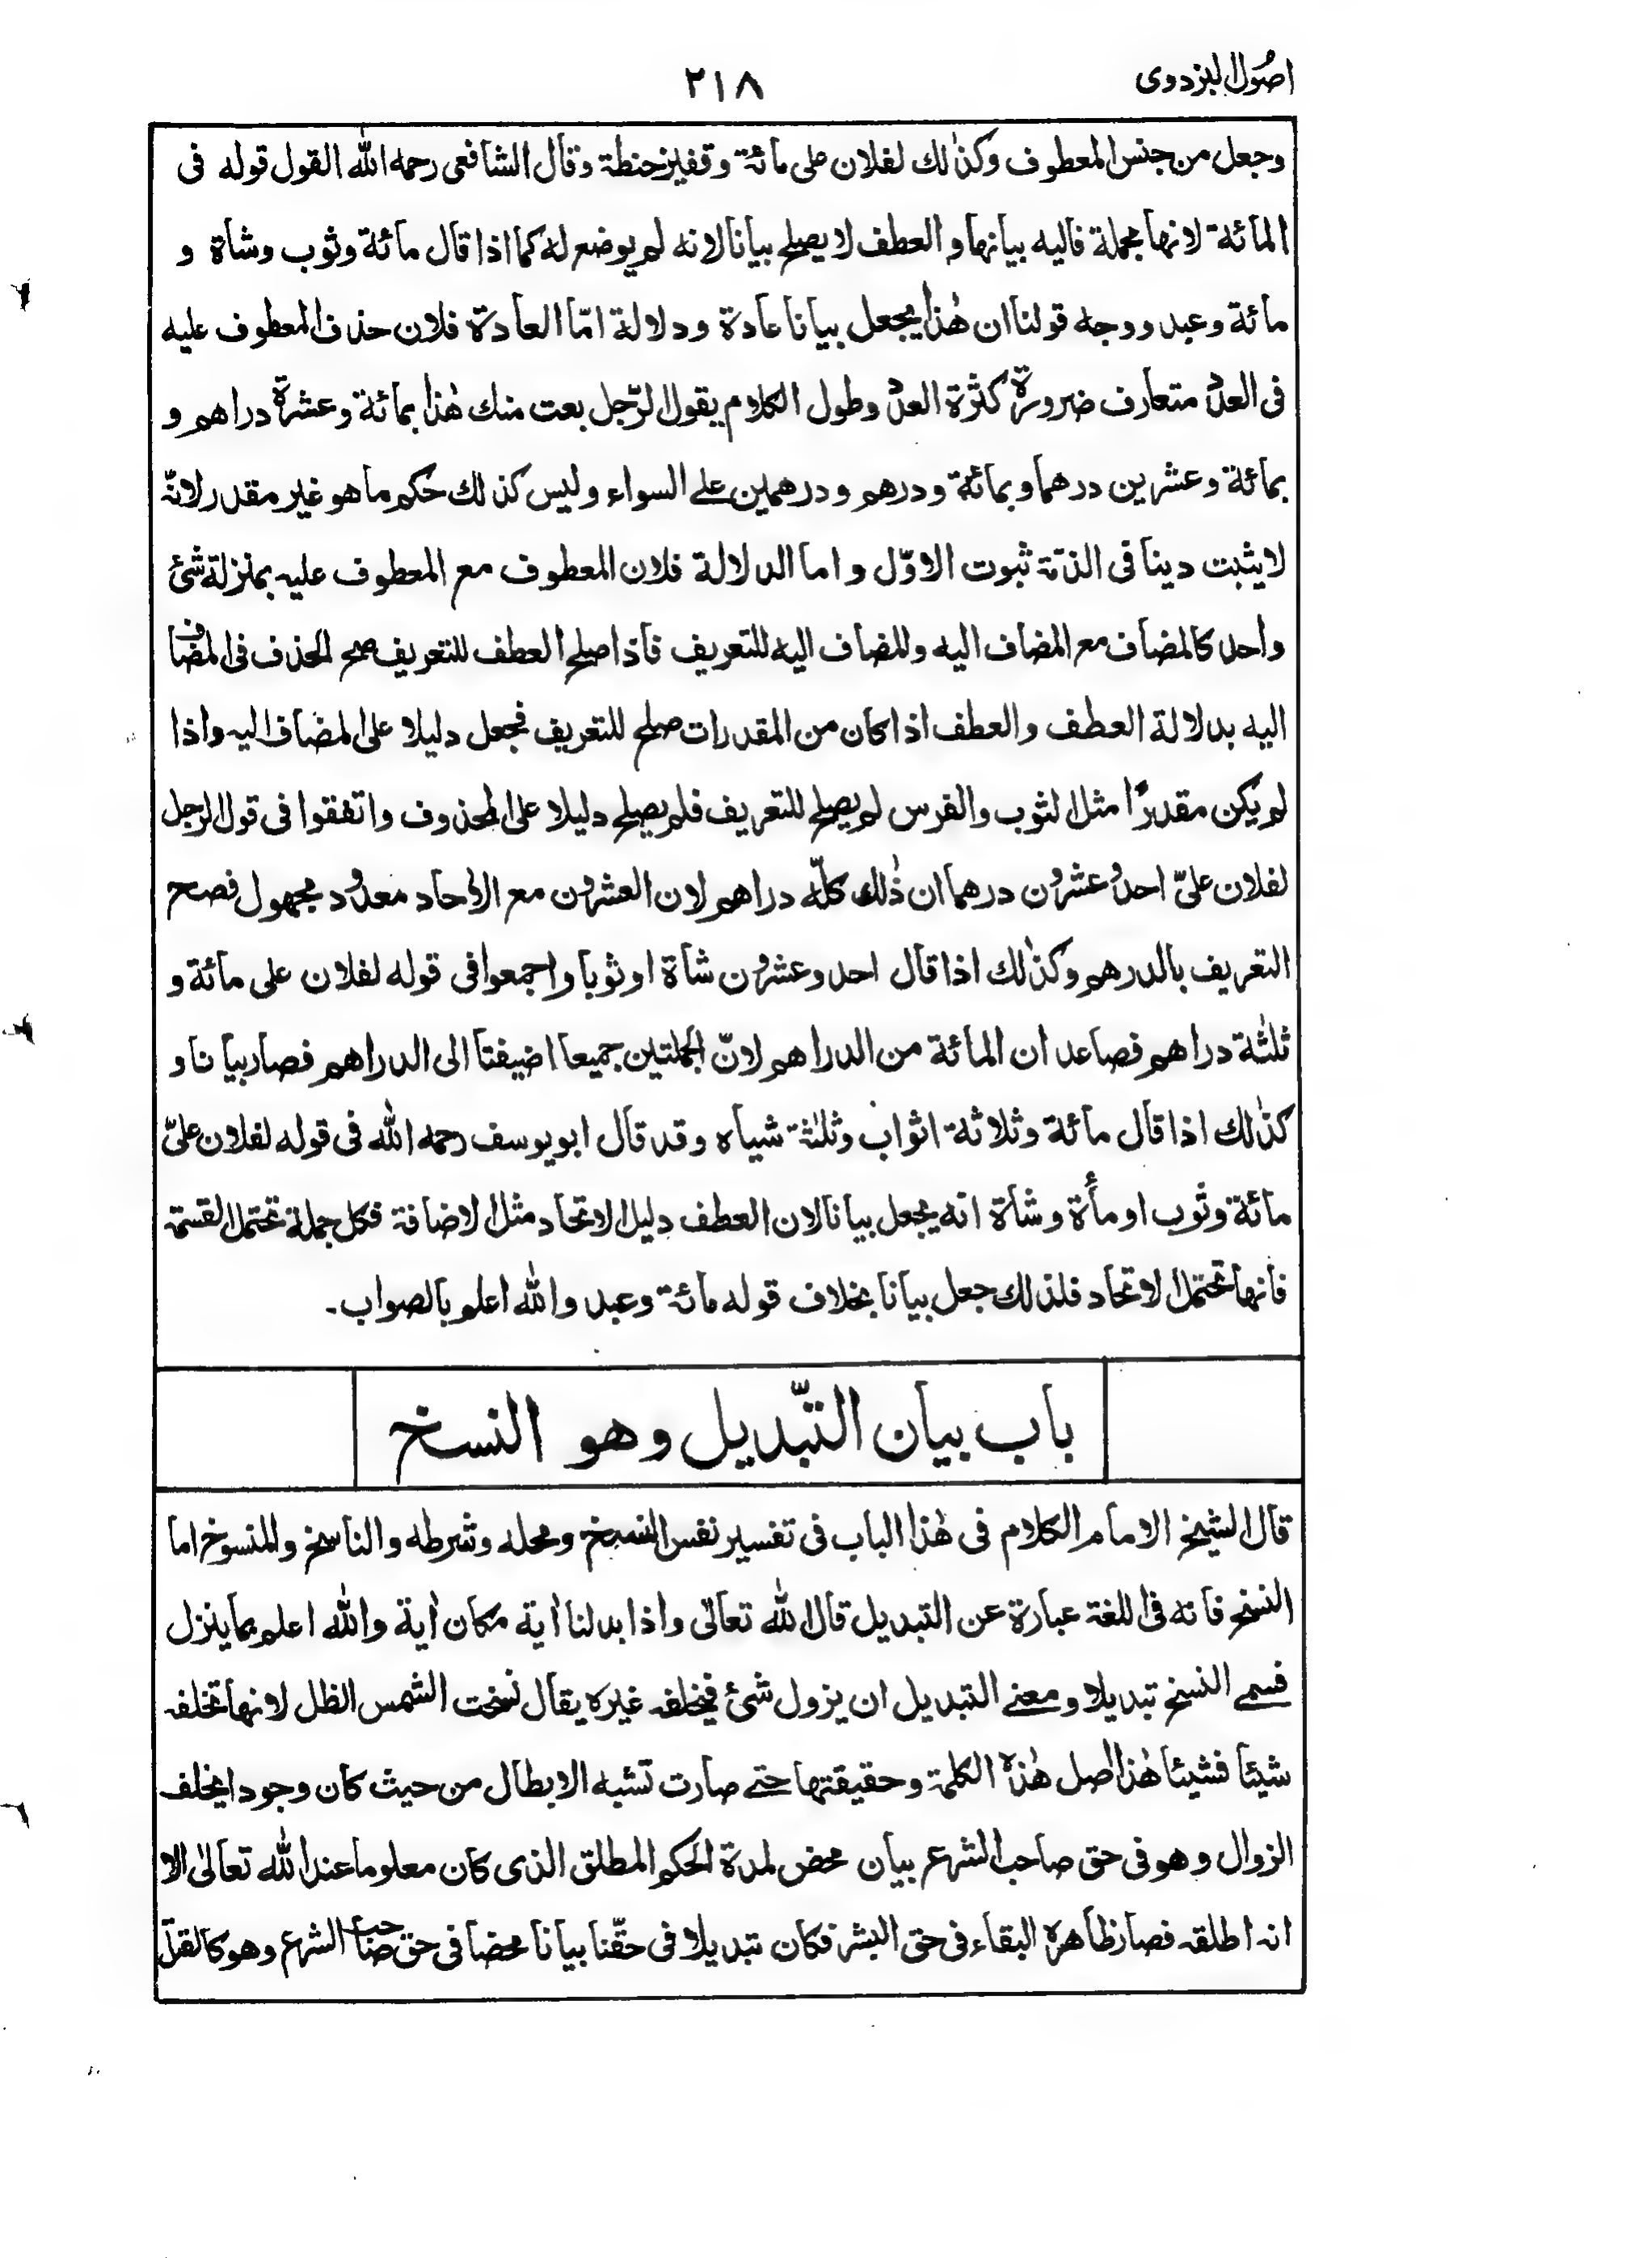 اصول البزدوى
٢١٨
وجعل من جنس المعطوف وكذٰلك لفلان على مائة وقفيز حنطة وقال الشافعى رحمه الله القول قوله فى
المائة لانها مجملة فاليه بيانها والعطف لا يصلح بيانا لانه لم يوضع له كما اذا قال مائة وثوب وشاة و
مائة وعبد ووجه قولنا ان هٰذا يجعل بيانا عادة ودلالة امّا العادة فلان حذف المعطوف عليه
فى العدد متعارف ضرورة كثرة العدد وطول الكلام يقول الرّجل بعت منك هٰذا بمائة وعشرة دراهم و
بمائة وعشرين درهما وبمائة ودرهم ودرهمين على السواء وليس كذلك حكم ما هو غير مقدر لانّه
لا يثبت دينا فى الذمّة ثبوت الاوّل واما الدلالة فلان المعطوف مع المعطوف عليه بمنزلة شئ
واحد كالمضاف مع المضاف اليه والمضاف اليه للتعريف فاذا صلح العطف للتعريف صح الحذف فى المضاف
اليه بدلالة العطف والعطف اذا كان من المقدرات صلح للتعريف فجعل دليلا على المضاف اليه واذا
لم يكن مقدرًا مثل الثوب والفرس لم يصلح للتعريف فلم يصلح دليلا على المحذوف واتفقوا فى قول الرجل
لفلان علىّ احد وعشرون درهما ان ذٰلك كلّه دراهم لان العشرون مع الاٰحاد معدود مجهول فصح
التعريف بالدرهم وكذٰلك اذا قال احد وعشرون شاة او ثوبا واجمعوا فى قوله لفلان على مائة و
ثلٰثة دراهم فصاعدا ن المائة من الدراهم لانّ الجملتين جميعا اضيفتا الى الدراهم فصار بيانا و
كذٰلك اذا قال مائة وثلاثة اثواب وثلٰثة شياه وقد قال ابو يوسف رحمه الله فى قوله لفلان علىّ
مائة وثوب او مأة وشاة انه يجعل بيانا لان العطف دليل الاتحاد مثل الاضافة فكل جملة تحتمل القسمة
فانها تحتمل الاتحاد فلذلك جعل بيانا بخلاف قوله مائة وعبد والله اعلم بالصواب.
باب بيان التّبديل وهو النسخ
قال الشيخ الامام الكلام فى هٰذا الباب فى تفسير نفس النسخ ومحله وشرطه والناسخ والمنسوخ اما
النسخ فانه فى اللغة عبارة عن التبديل قال الله تعالىٰ واذا بدلنا اٰية مكان اٰية والله اعلم بما ينزل
فسمى النسخ تبديلا ومعنى التبديل ان يزول شئ فيخلفه غيره يقال نسخت الشمس الظل لانها تخلفه
شيئا فشيئا هٰذا اصل هٰذه الكلمة وحقيقتها حتى صارت تشبه الابطال من حيث كان وجودا يخلف
الزوال وهو فى حق صاحب الشرع بيان محض لمدة الحكم المطلق الذى كان معلوما عند الله تعالىٰ الا
انه اطلقه فصار ظاهره البقاء فى حق البشر فكان تبديلا فى حقّنا بيانا محضا فى حق صاحب الشرع وهو كالقتل